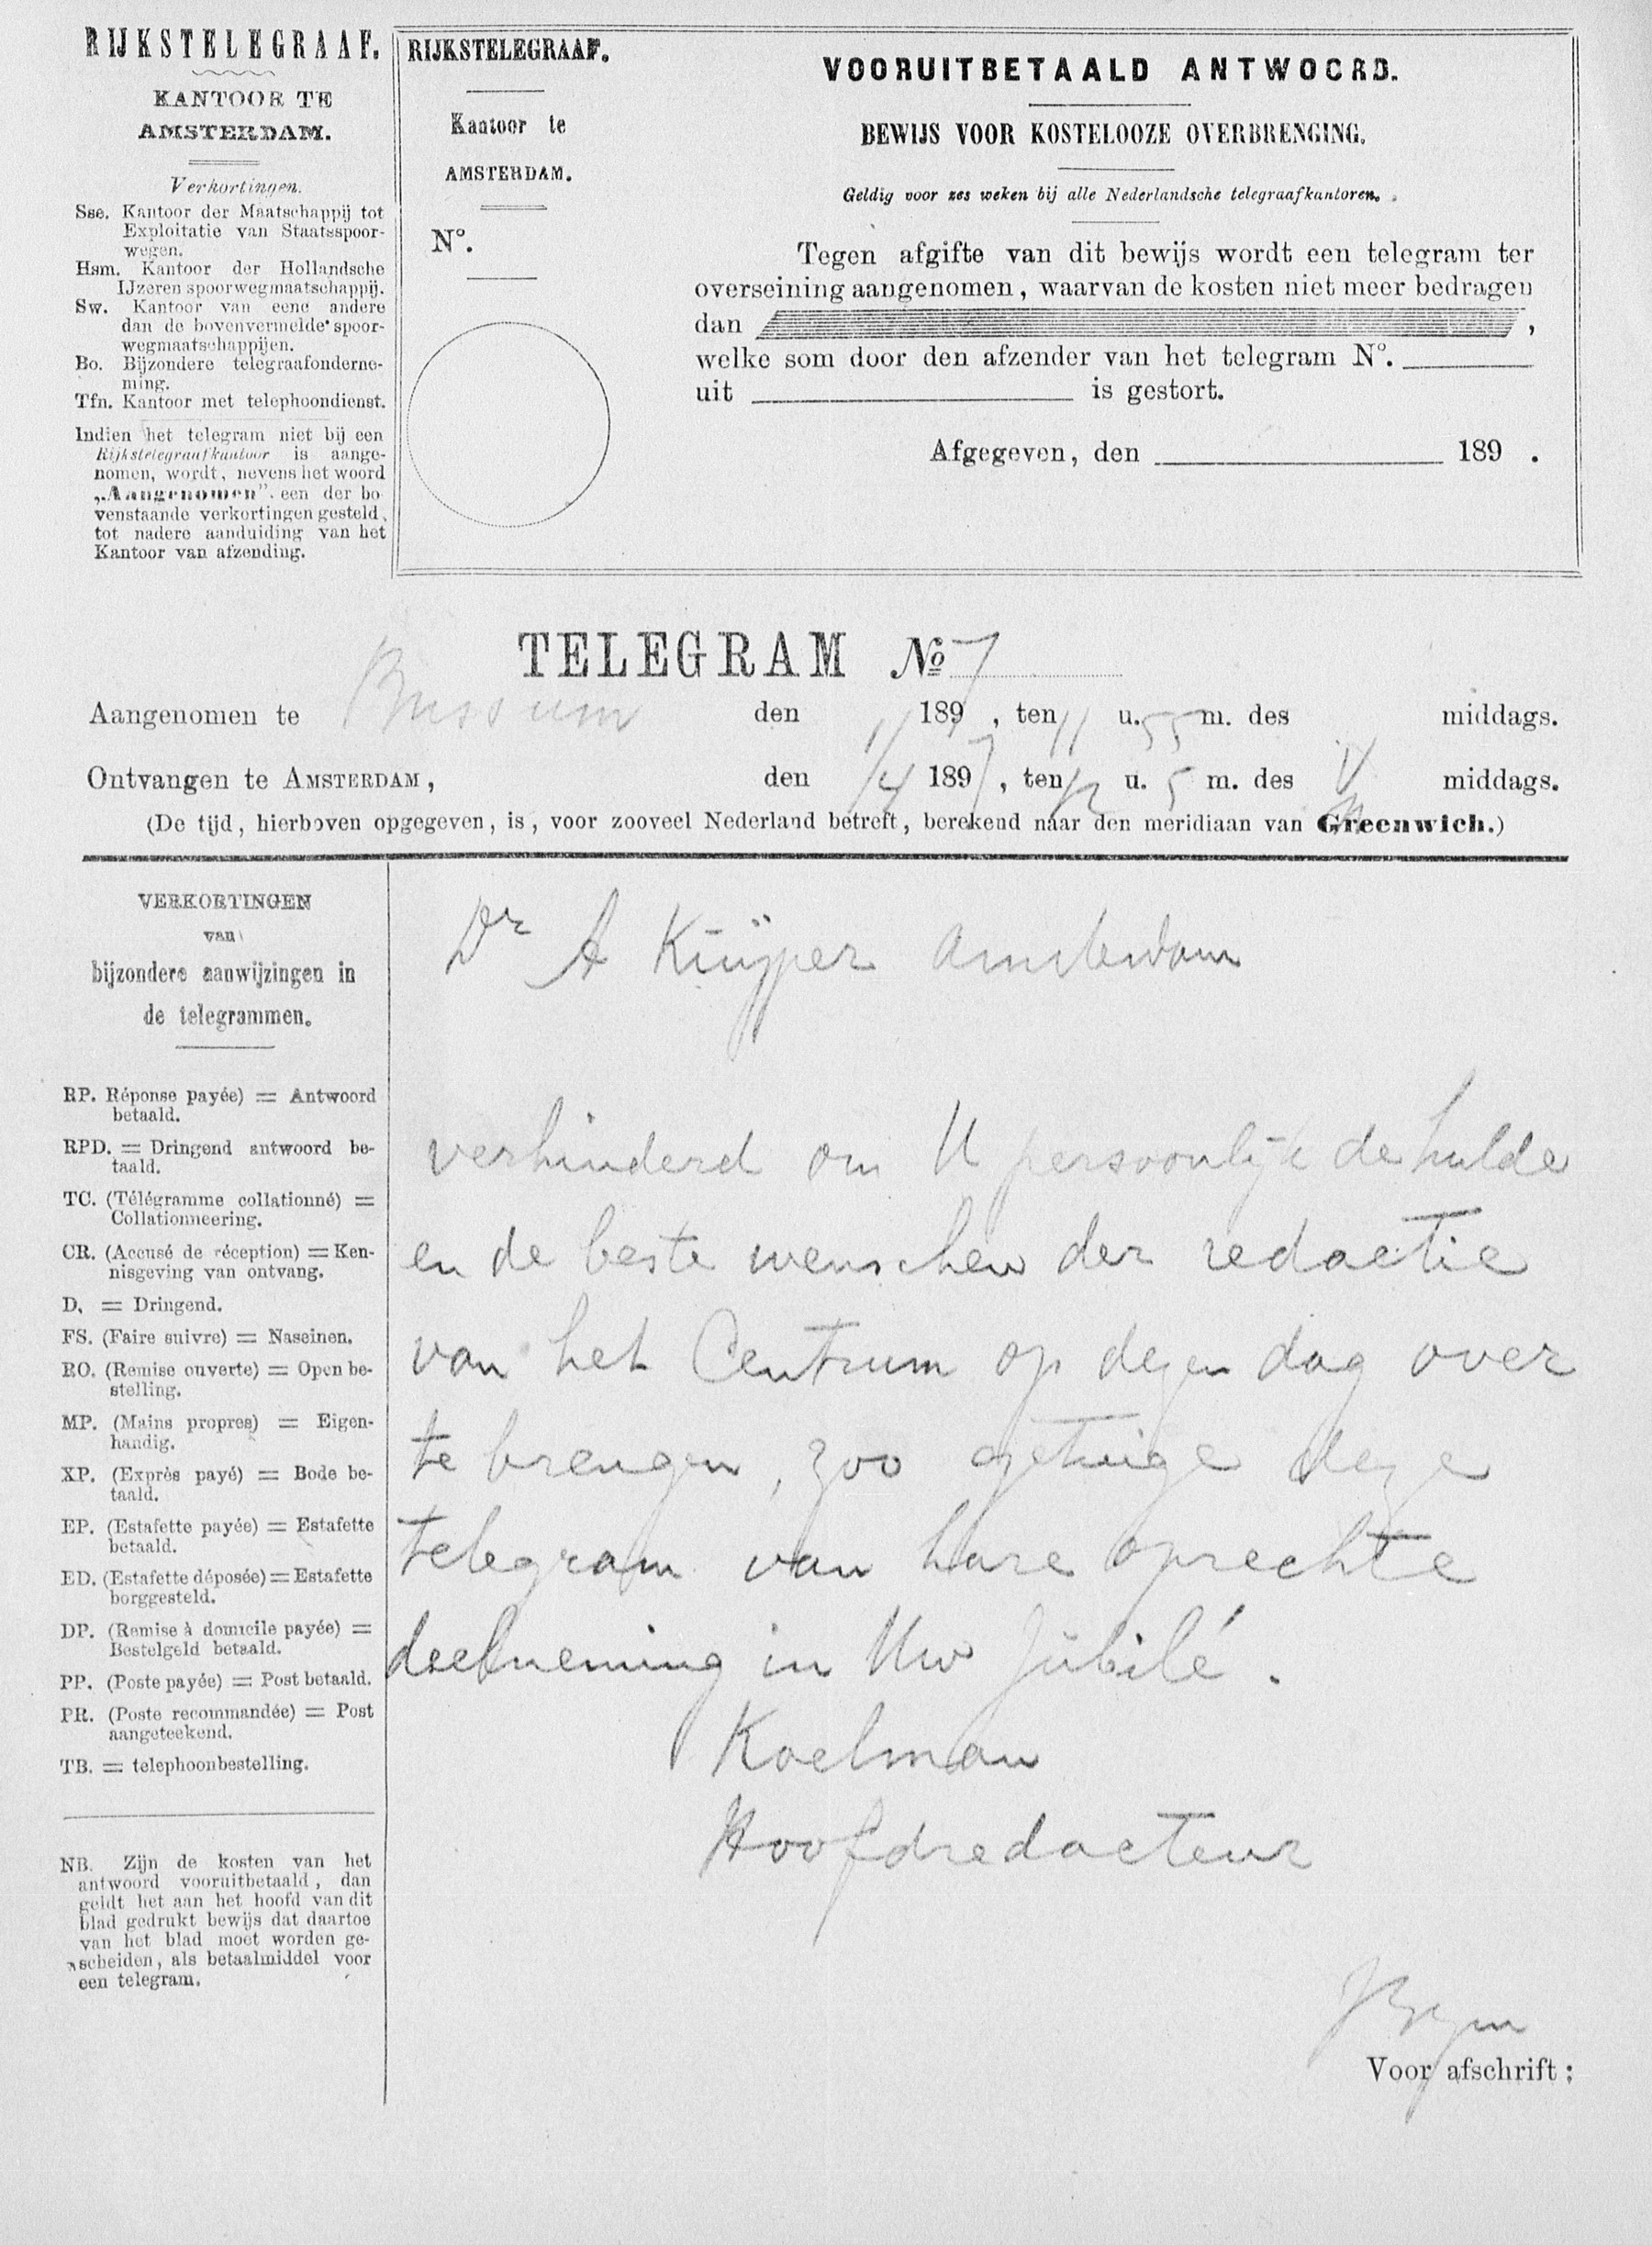 RIJKSTELEGRAAF.
KANTOOR TE
AMSTERDAM.
Verkortingen.
Sse. Kantoor der Maatschappij tot
Exploitatie van Staatsspoor-
wegen.
Hsm. Kantoor der Hollandsche
IJzeren spoorwegmaatschappij.
Sw. Kantoor van eene andere
dan de bovenvermelde spoor-
wegmaatschappijen.
Bo. Bijzondere telegraafonderne-
ming.
Tfn. Kantoor met telephoondienst.
Indien het telegram niet bij een
Rijkstelegraafkantoor is aange-
nomen, wordt, nevens het woord
„Aangenomen". een der bo
venstaande verkortingen gesteld,
tot nadere aanduiding van het
Kantoor van afzending.
RIJKSTELEGRAAF.
Kantoor te
AMSTERDAM.
No.
VOORUITBETAALD ANTWOORD.
BEWIJS VOOR KOSTELOOZE OVERBRENGING.
Geldig voor zes weken bij alle Nederlandsche telegraafkantoren.
Tegen afgifte van dit bewijs wordt een telegram ter
overseining aangenomen, waarvan de kosten niet meer bedragen
dan ,
welke som door den afzender van het telegram No.
uit is gestort.
Afgegeven, den 189 .
TELEGRAM No 7
Aangenomen te Bussum den 1/ 1897, ten 11 u. 55 m. des middags.
Ontvangen te AMSTERDAM, den 1/4 1897, ten 12 u. 5 m. des V middags.
(De tijd, hierboven opgegeven, is, voor zooveel Nederland betreft, berekend naar den meridiaan van Greenwich.)
VERKORTINGEN
van
bijzondere aanwijzingen in
de telegrammen.
RP. Réponse payée) = Antwoord
betaald.
RPD. = Dringend antwoord be-
taald.
TC. (Télégramme collationné) =
Collationneering.
CR. (Accusé de réception) = Ken-
nisgeving van ontvang.
D. = Dringend.
FS. (Faire suivre) = Naseinen.
RO. (Remise ouverte) = Open be-
stelling.
MP. (Mains propres) = Eigen-
handig.
XP. (Exprès payé) = Bode be-
taald.
EP. (Estafette payée) = Estafette
betaald.
ED. (Estafette déposée) = Estafette
borggesteld.
DP. (Remise à domicile payée) =
Bestelgeld betaald.
PP. (Poste payée) = Post betaald.
PR. (Poste recommandée) = Post
aangeteekend.
TB. = telephoonbestelling.
NB. Zijn de kosten van het
antwoord vooruitbetaald, dan
geldt het aan het hoofd van dit
blad gedrukt bewijs dat daartoe
van het blad moet worden ge-
scheiden, als betaalmiddel voor
een telegram.
Dr A Kuÿper Amsterdam
verhinderd om U persoonlijk de hulde
en de beste wenschen der redactie
van het Centrum op dezen dag over
te brengen, zoo getuige deze
telegram van hare oprechte
deelneming in Uw Jubilé.
Koelman
Hoofdredacteur
Voor afschrift: